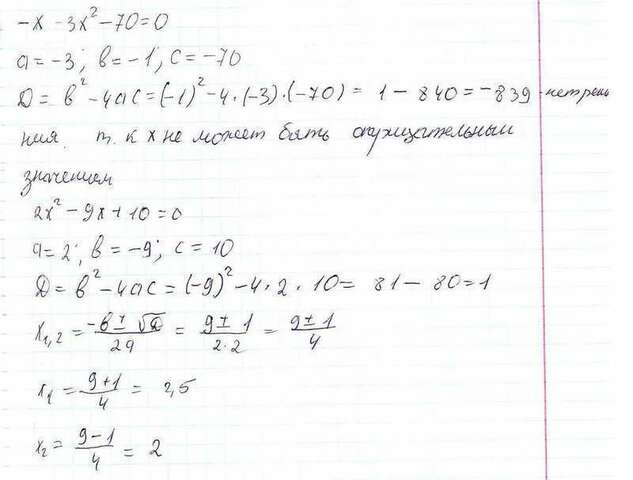 -x - 3x² - 70 = 0
a = -3; b = -1; c = -70
D = b² - 4ac = (-1)² - 4 · (-3) · (-70) = 1 - 840 = -839 - нет реше
ния. т. к x не может быть отрицательным
значением
2x² - 9x + 10 = 0
a = 2; b = -9; c = 10
D = b² - 4ac = (-9)² - 4 · 2 · 10 = 81 - 80 = 1
x₁,₂ = (-b ± √D)/2a = (9 ± 1)/(2·2) = (9 ± 1)/4
x₁ = (9 + 1)/4 = 2,5
x₂ = (9 - 1)/4 = 2